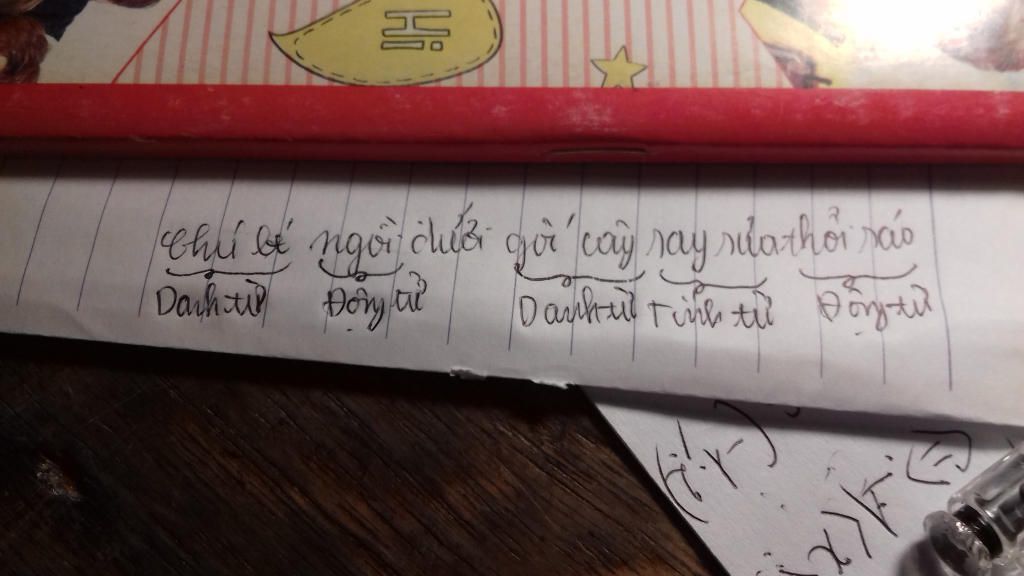 Hi
chú bé ngồi dưới gốc cây say sưa thổi sáo
Danh từ Động từ Danh từ Tính từ Động từ